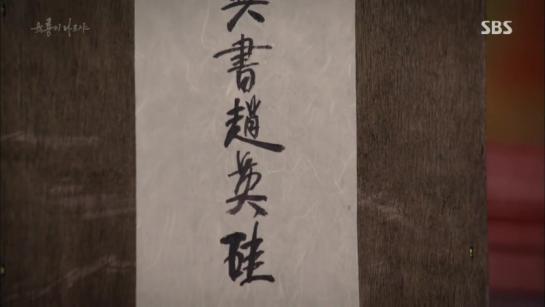 육룡이 나르샤
SBS
書趙英硅